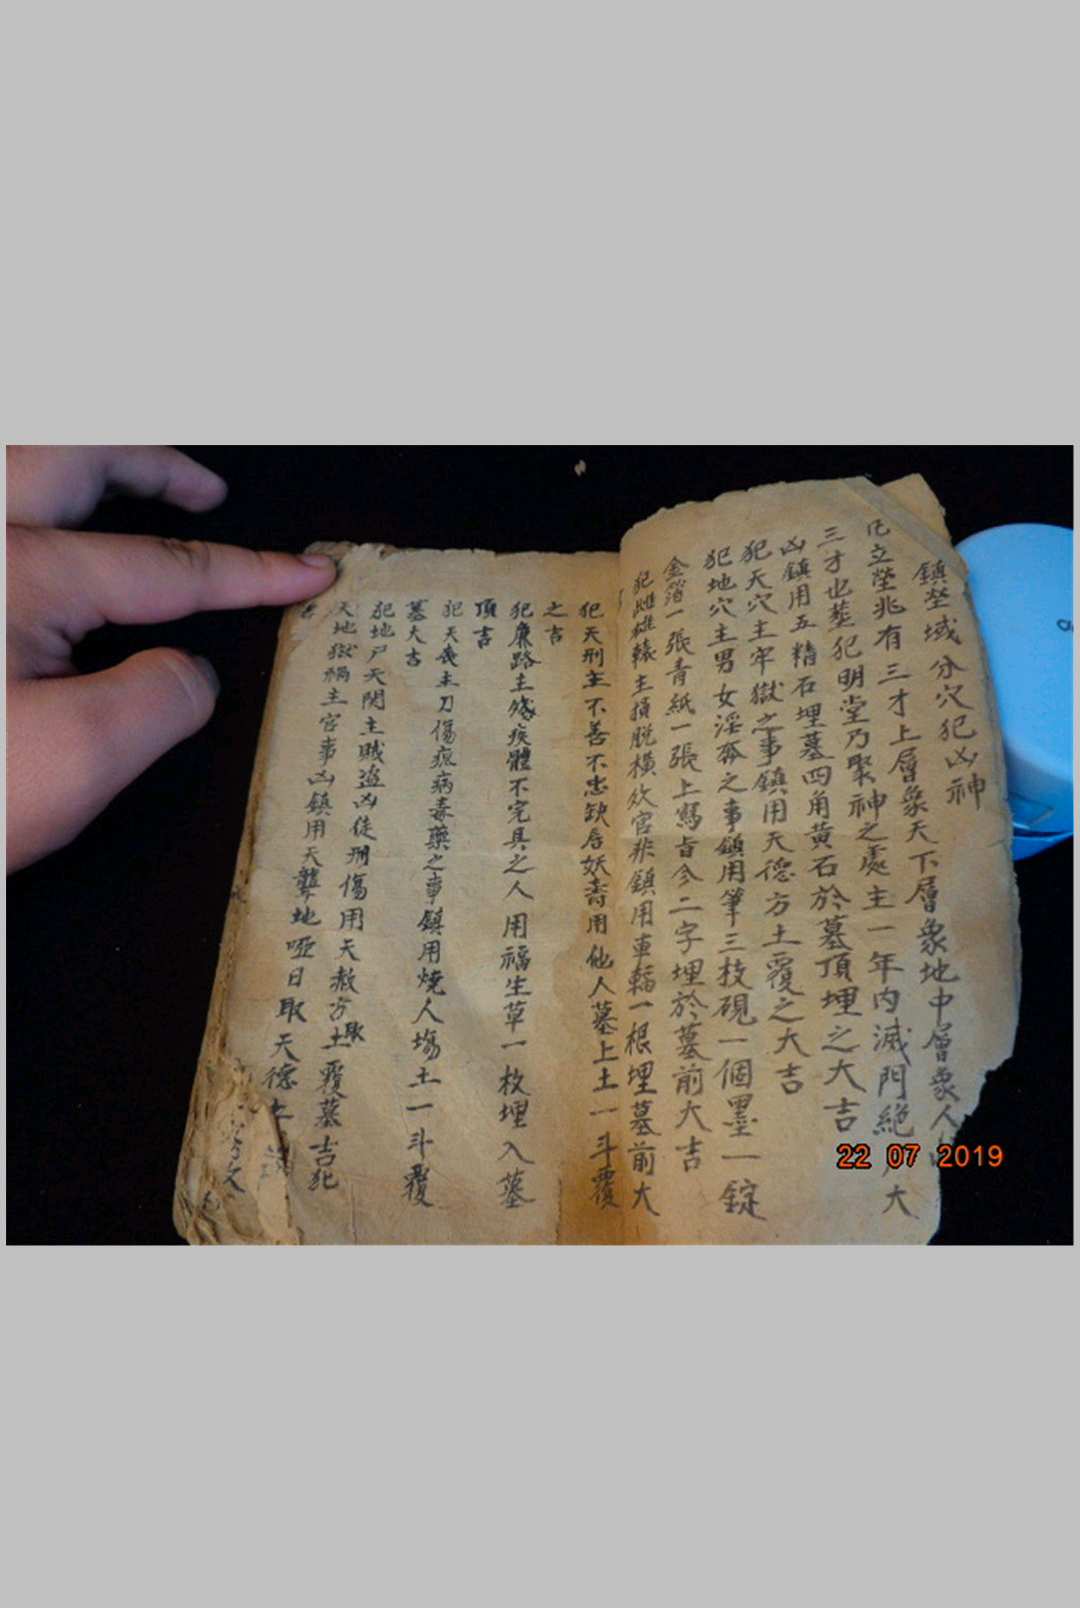 鎮塋域分穴犯凶神
凡立塋兆有三才上層象天下層象地中層象人
三才也葬犯明堂乃聚神之處主一年內滅門絕 大
凶鎮用五精石埋墓四角黃石於墓頂埋之大吉
犯天穴主牢獄之事鎮用天德方土覆之大吉
犯地穴主男女淫 之事鎮用筆三枝硯一個墨一錠
金箔一張青紙一張上寫 二字埋於墓前大吉
犯雌雄轅主損脫橫 官非鎮用車輻一根埋墓前大
犯天刑主不善不忠缺唇妖 用他人墓上土一斗覆
之吉
犯廉路主殘疾體不完具之人用福生草一枚埋入墓
頂吉
犯天喪主刀傷瘟病毒藥之事鎮用燒人塲土一斗覆
墓大吉
犯地尸天関主賊盗凶徒刑傷用天赦方取土覆墓吉犯
天地獄禍主官事凶鎮用天聾地啞日取天德土
22 07 2019